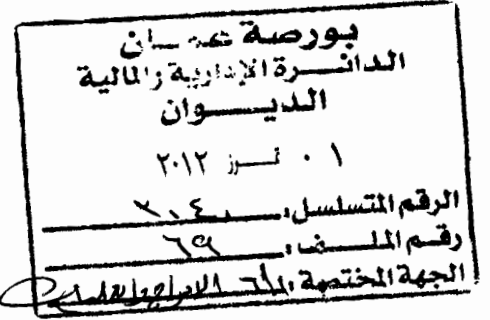 بورصة عمان
الدائرة الإدارية والمالية
الديوان
٠١ تموز ٢٠١٢
الرقم المتسلسل:
رقم الملف: ٦٩
الجهة المختصة: